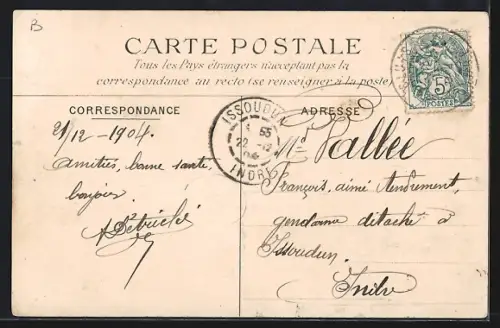 B
CARTE POSTALE
Tous les Pays étrangers n'acceptant pas la
correspondance au recto (se renseigner à la poste)
5
POSTES
CORRESPONDANCE
21/12 - 1904.
amitiés, bonne santé
bonjour
ISSOUDUN
55
22 - 12
04
INDRE
ADRESSE
Mr Vallée
François, aimé tendrement,
gendarme détaché à
Issoudun.
Indre